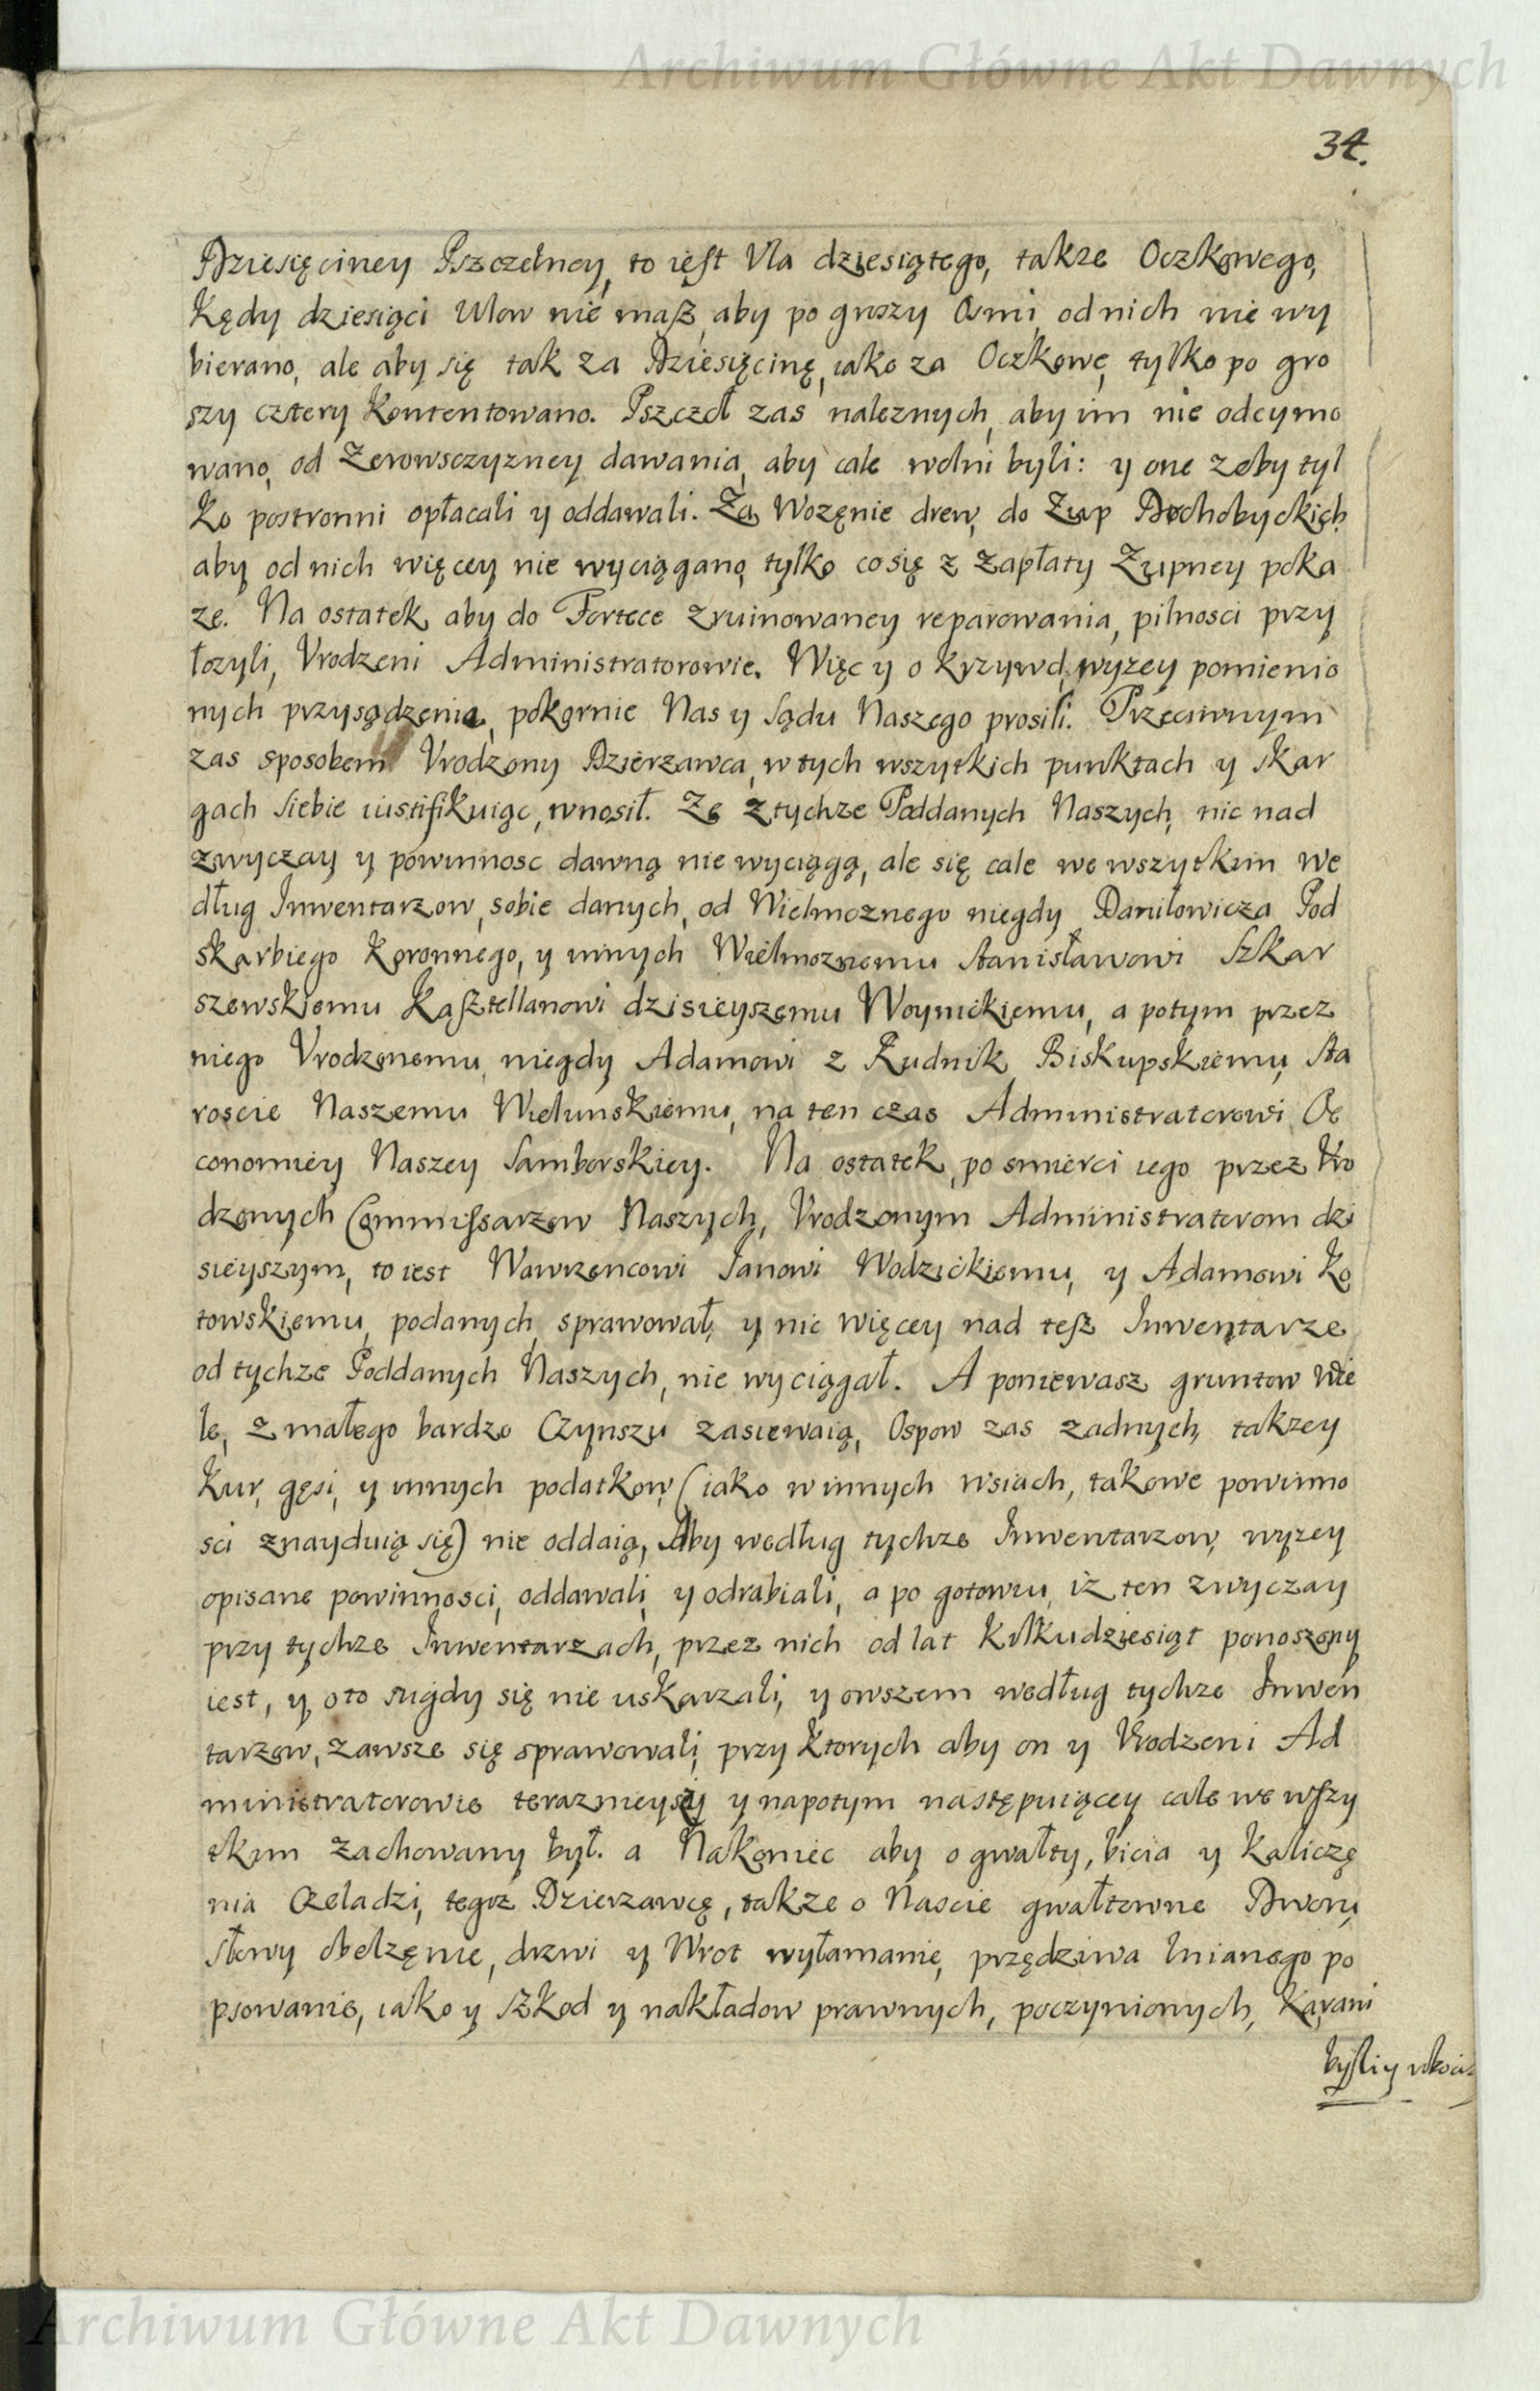 Archiwum Główne Akt Dawnych
34.
Dziesięciney Pszczelney, to iest Vla dziesiątego, takze Oczkowego,
Kędy dziesiąci Ulow nie masz, aby po groszy Osmi, od nich nie wy
bierano, ale aby się tak za Dziesięcinę, iako za Oczkowe, tylko po gro
szy cztery Kontentowano. Pszczoł zas naleznych, aby im nie odeymo
wano, od Zerowsczyzney dawania, aby cale wolni byli: y one zeby tyl
ko postronni opłacali y oddawali. Za Wozęnie drew, do Zup Drohobyckich
aby od nich więcey nie wyciągano, tylko co się z zapłaty Zupney poka
ze. Na ostatek, aby do Fortece zruinowaney reparowania, pilnosci przy
łozyli, Vrodzeni Administratorowie. Więc y o Krzywd, wyzey pomienio
nych przysądzenia, pokornie Nas y Sądu Naszego prosili. Przeciwnym
zas sposobem Vrodzony Dzierzawca, w tych wszytkich punktach y skar
gach siebie iustifikuiąc, wnosił. Ze z tychze Poddanych Naszych, nic nad
zwyczay y powinnosc dawną nie wyciągą, ale się cale we wszytkim we
dług Inwentarzow, sobie danych, od Wielmoznego niegdy Daniłowicza Pod
skarbiego Koronnego, y innych Wielmoznemu Stanisławowi Szkar
szewskiemu Kasztellanowi dzisieyszemu Woynickiemu, a potym przez
niego Vrodzonemu, niegdy Adamowi z Rudnik Biskupskiemu, Sta
roscie Naszemu Wielunskiemu, na ten czas Administratorowi Oe
conomiey Naszey Samborskiey. Na ostatek, po smierci iego przez Vro
dzonych Commissarzow Naszych, Vrodzonym Administratorom dzi
sieyszym, to iest Wawrzencowi Janowi Wodzickiemu, y Adamowi Ko
towskiemu, podanych, sprawował, y nic więcey nad tesz Inwentarze
od tychze Poddanych Naszych, nie wyciągał. A poniewasz gruntow wie
le, z małego bardzo Czynszu zasiewaią, Ospow zas zadnych, takzey
Kur, gęsi, y innych podatkow, (iako w innych wsiach, takowe powinno
sci znayduią się) nie oddaią, Aby według tychze Inwentarzow, wyzey
opisane powinnosci, oddawali, y odrabiali, a po gotowiu, iż ten zwyczay
przy tychze Inwentarzach, przez nich od lat Kilkudziesiąt ponoszony
iest, y o to nigdy się nie uskarzali, y owszem według tychze Inwen
tarzow, zawsze się sprawowali, przy Ktorych aby on y Vrodzeni Ad
ministratorowie terazmieyszy y napotym następuiącey cale we wszy
tkim zachowany był. a Nakoniec aby o gwałty, bicia y Kaliczę
nia Czeladzi, tegoz Dzierzawcę, takze o Nascie gwałtowne Dworu,
słowy obelzęnie, drzwi y Wrot wyłamanie, przędziwa lnianego po
psowanie, iako y szkod y nakładow prawnych, poczynionych, Karani
byli y
Archiwum Główne Akt Dawnych